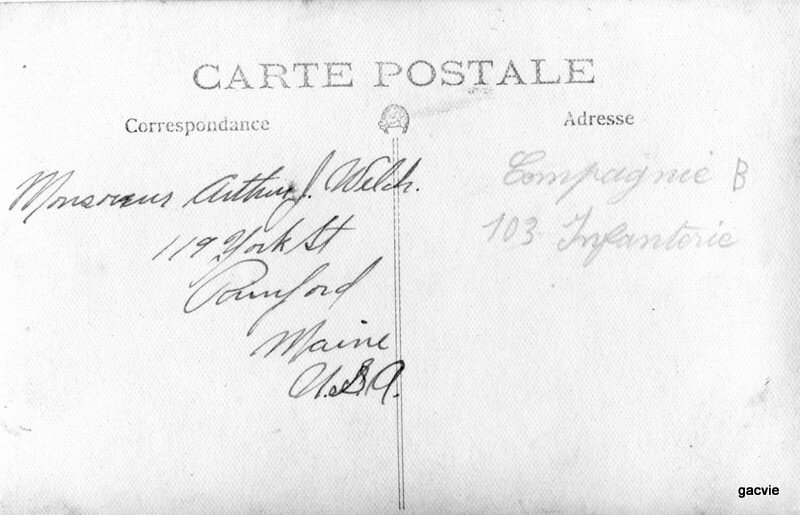 CARTE POSTALE
Correspondance
Adresse
Monsieur Arthur J. Welch.
119 York St
Rumford
Maine
U.S.A.
Compagnie B
103 Infanterie
gacvie